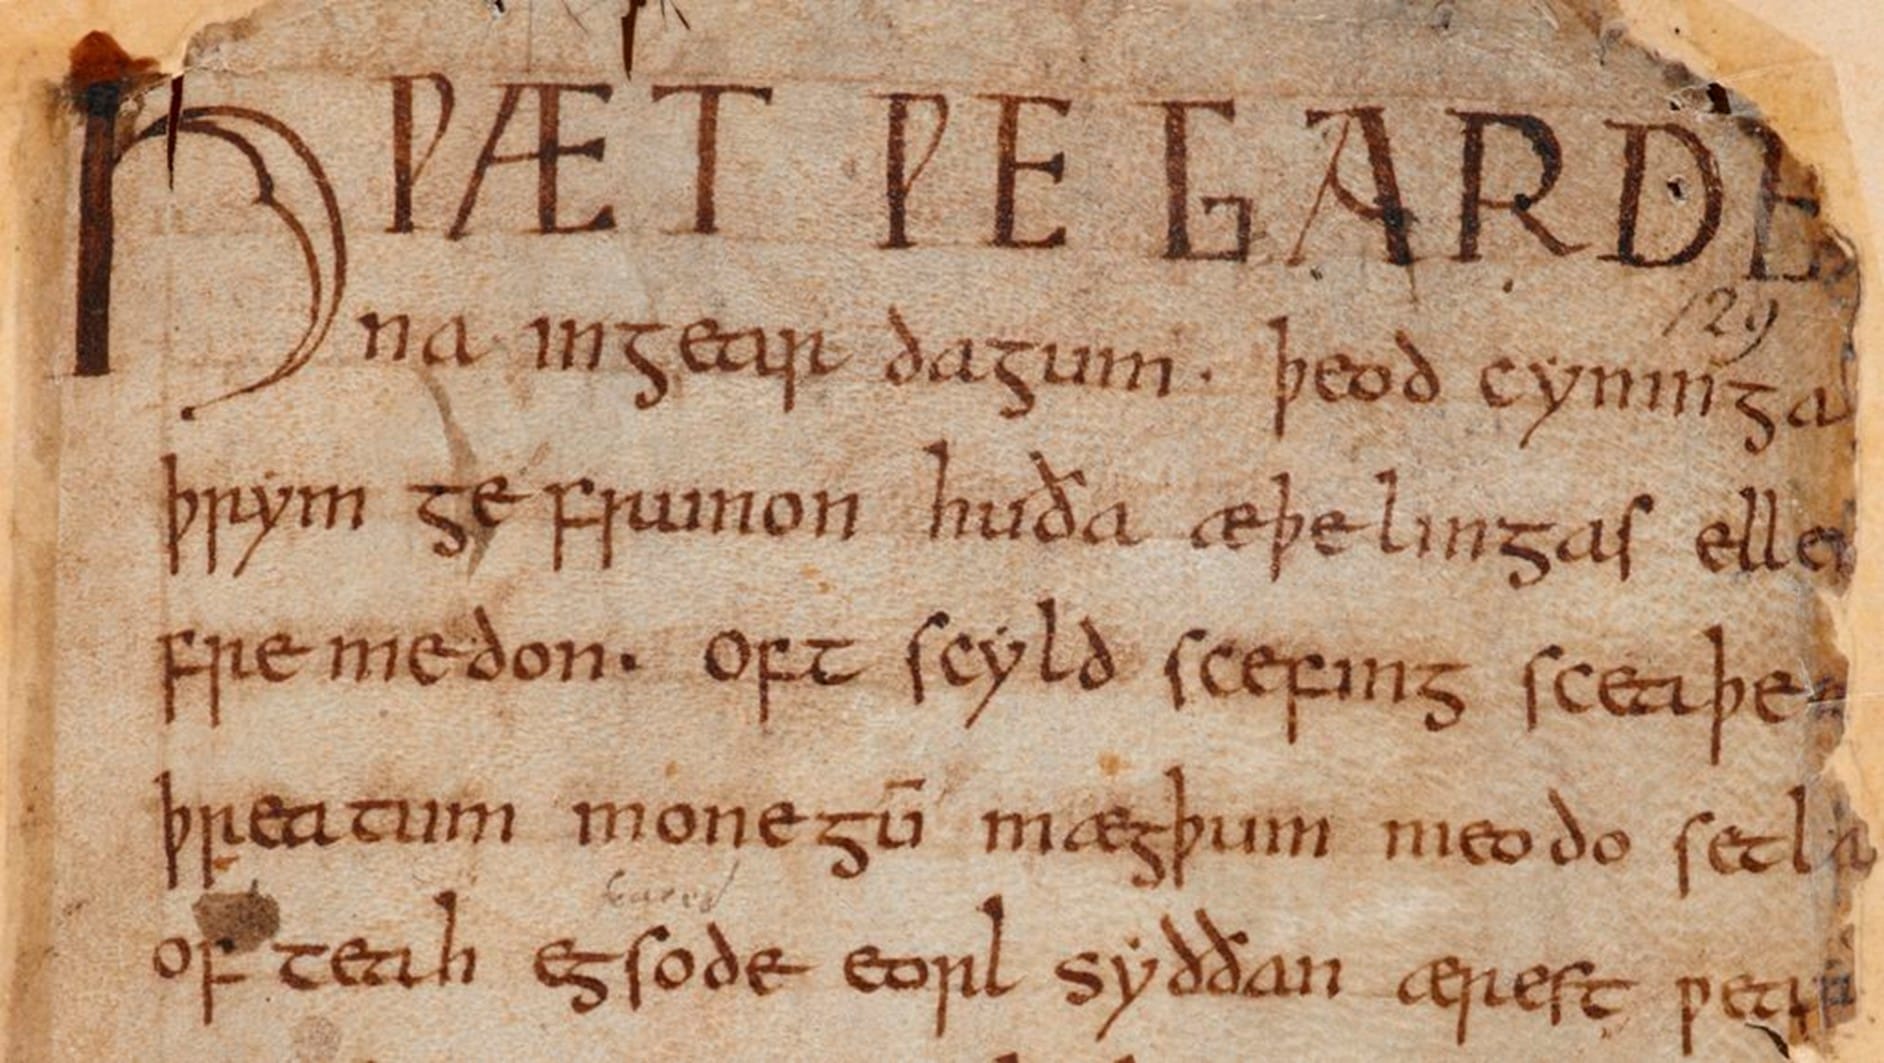 HǷÆT ǷE GARDE
129
na ingear dagum. þeod cyninga
þrym ge frunon huða æþelingas elle
fre medon. oft scyld scefing sceaþe
þreatum monegū mægþum meodo setla
feared
of teah egsode eorl syððan ærest ƿear